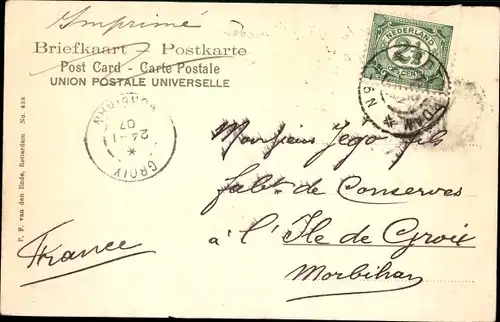 Imprimé
Briefkaart - Postkarte
Post Card - Carte Postale
UNION POSTALE UNIVERSELLE
NEDERLAND
2½
CENT
GROIX
24-1
07
MORBIHAN
Monsieur Jego fils
fabt de Conserves
à l'Ile de Groix
Morbihan
France
P. F. van den Ende, Rotterdam No. 428